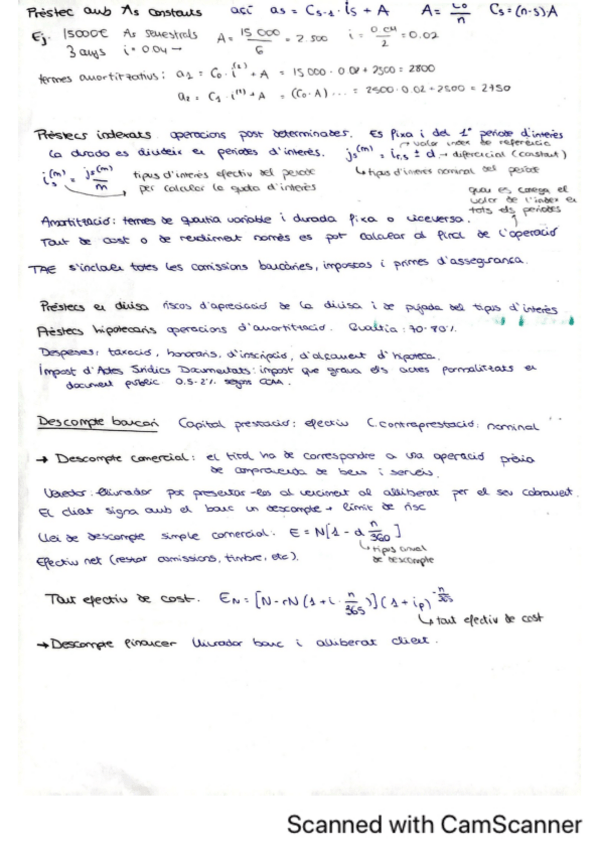 Préstec amb As constants així as = Cs-1 · is + A A = C0/n Cs = (n-s)·A
Ej. 15000€ As semestrals A = 15 000/6 = 2.500 i = 0'04/2 = 0.02
3 anys i = 0.04 →
termes amortitzatius: a1 = C0 · i(2) + A = 15 000 · 0'02 + 2500 = 2800
a2 = C1 · i(m) + A = (C0 - A) ... = 2500 · 0.02 + 2500 = 2750
Préstecs indexats operacions post determinades. Es fixa i del 1r període d'interès
valor index de referència
La durada es divideix en períodes d'interès. js(m) = ir,s ± d → diferencial (constant)
is(m) = js(m)/m tipus d'interès efectiu del període
per calcular la quota d'interès
tipus d'interès nominal del període
quan es coneix el
valor de l'index en
tots els períodes
Amortització: termes de quantia variable i durada fixa o viceversa.
Tant de cost o de rendiment només es pot calcular al final de l'operació
TAE s'inclouen totes les comissions bancàries, impostos i primes d'assegurança.
Préstecs en divisa riscos d'apreciació de la divisa i de pujada del tipus d'interès
Préstecs hipotecaris operacions d'amortització. Quantia: 70-80%
Despeses, taxació, honoraris, d'inscripció, d'alçament d'hipoteca.
Impost d'Actes Jurídics Documentats: impost que grava els actes formalitzats en
document públic 0.5-2% segons CCAA.
Descompte bancari Capital prestació: efectiu C. contraprestació: nominal
→ Descompte comercial: el títol ha de correspondre a una operació prèvia
de compravenda de bens i serveis.
Venedor: lliurador pot presentar-los al venciment al alliberat per el seu cobrament.
El client signa amb el banc un descompte → límit de risc
Llei de descompte simple comercial: E = N[1 - d n/360]
tipus anual
de descompte
Efectiu net (restar comissions, timbre, etc).
Tant efectiu de cost. EN = [N - rN(1 + i · n/365)](1 + ip)^-n/365
tant efectiu de cost
→ Descompte financer lliurador banc i alliberat client.
Scanned with CamScanner